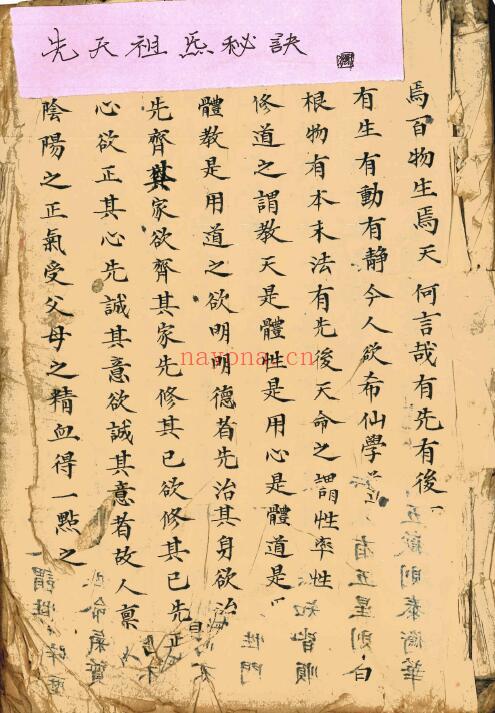 先天祖炁秘訣
焉百物生焉天何言哉有先有後
有生有動有靜今人欲希仙學
根物有本末法有先後天命之謂性率性
修道之謂教天是體性是用心是體道是
體教是用道之欲明明德者先治其身欲治
先齊其家欲齊其家先修其已欲修其已先正
心欲正其心先誠其意欲誠其意者故人稟
陰陽之正氣受父母之精血得一點之
nayona.cn